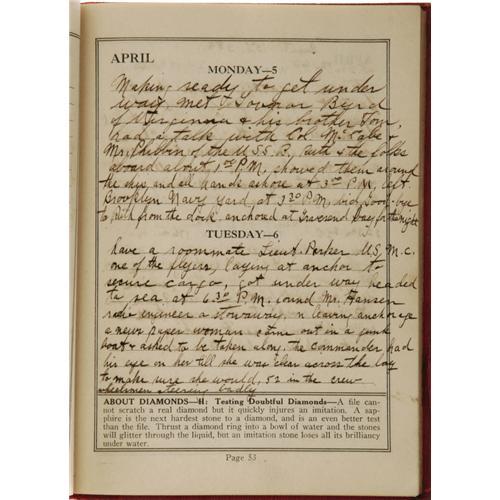 APRIL
MONDAY—5
Making ready to get under
way, met Govnor Byrd
of Verginna & his brother Tom,
had a talk with Col McCabe &
Mr. of the U.S.S.B. Ruth & the folks
aboard about 1 P.M, showed them around
the ship, and all hands ashore at 3 P.M, left
Brooklyn Navy Yard, at 3 20 P.M, bid Good-bye
to Ruth from the dock, anchored at Gravesend Bay for the night
TUESDAY—6
have a roommate Lieut. Parker U.S.M.C.
one of the flyers, laying at anchor to
secure cargo, got under way headed
to sea at 6 30 P.M. found Mr. Hansen
radio engineer a stowaway, n leaving anchorage
a news paper woman came out in a junk
boat & asked to be taken along, the commander had
his eye on her till she was clear across the bay
to make sure she would, 52 in the crew
steering badly
ABOUT DIAMONDS—II: Testing Doubtful Diamonds—A file can-
not scratch a real diamond but it quickly injures an imitation. A sap-
phire is the next hardest stone to a diamond, and is an even better test
than the file. Thrust a diamond ring into a bowl of water and the stones
will glitter through the liquid, but an imitation stone loses all its brilliancy
under water.
Page 53